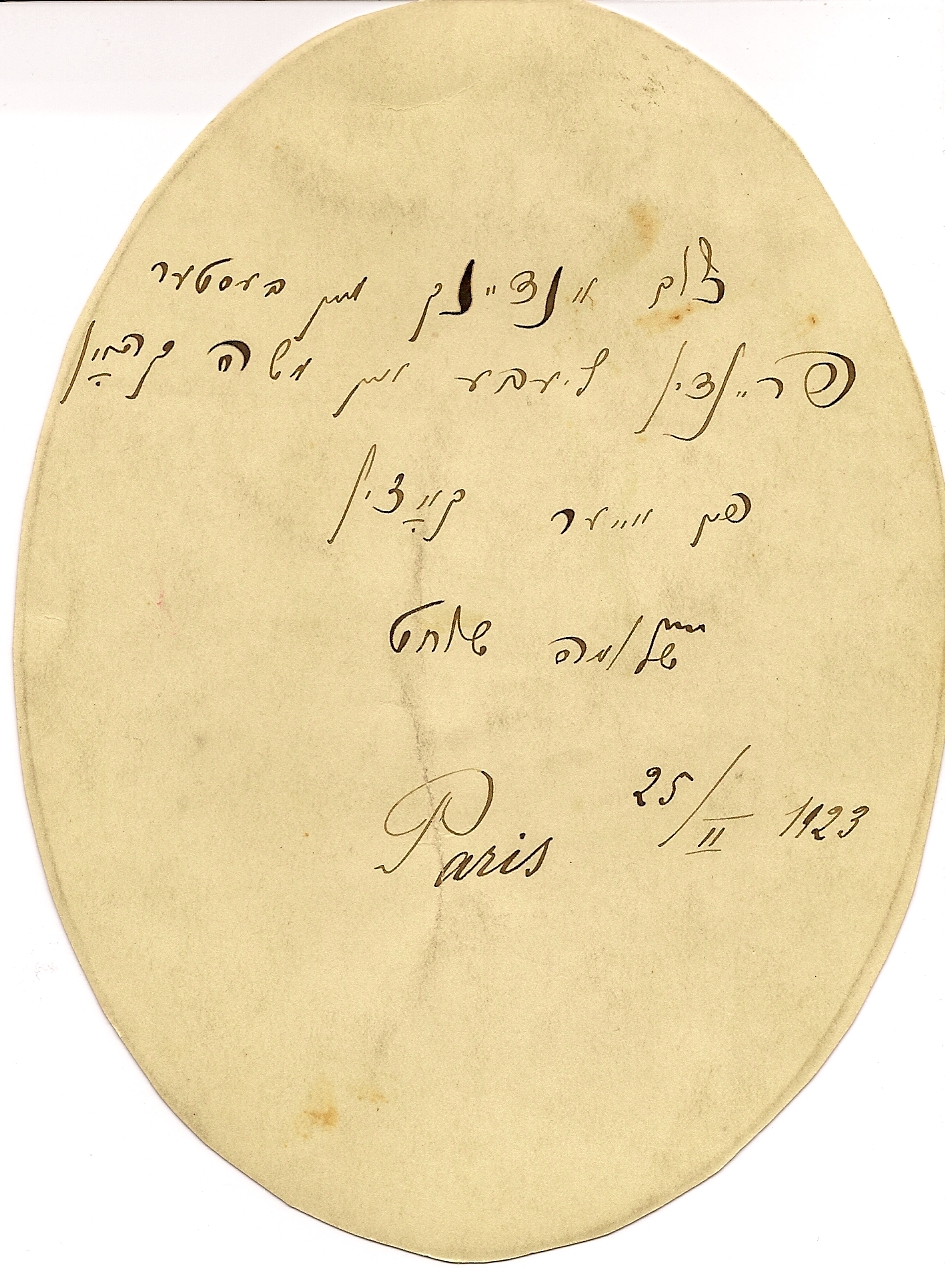 צום אנדיינק און בעסטער
פריינדין ליעבע און משה
פון אייער קוזין
שלומה שוחט
Paris 25/II 1923